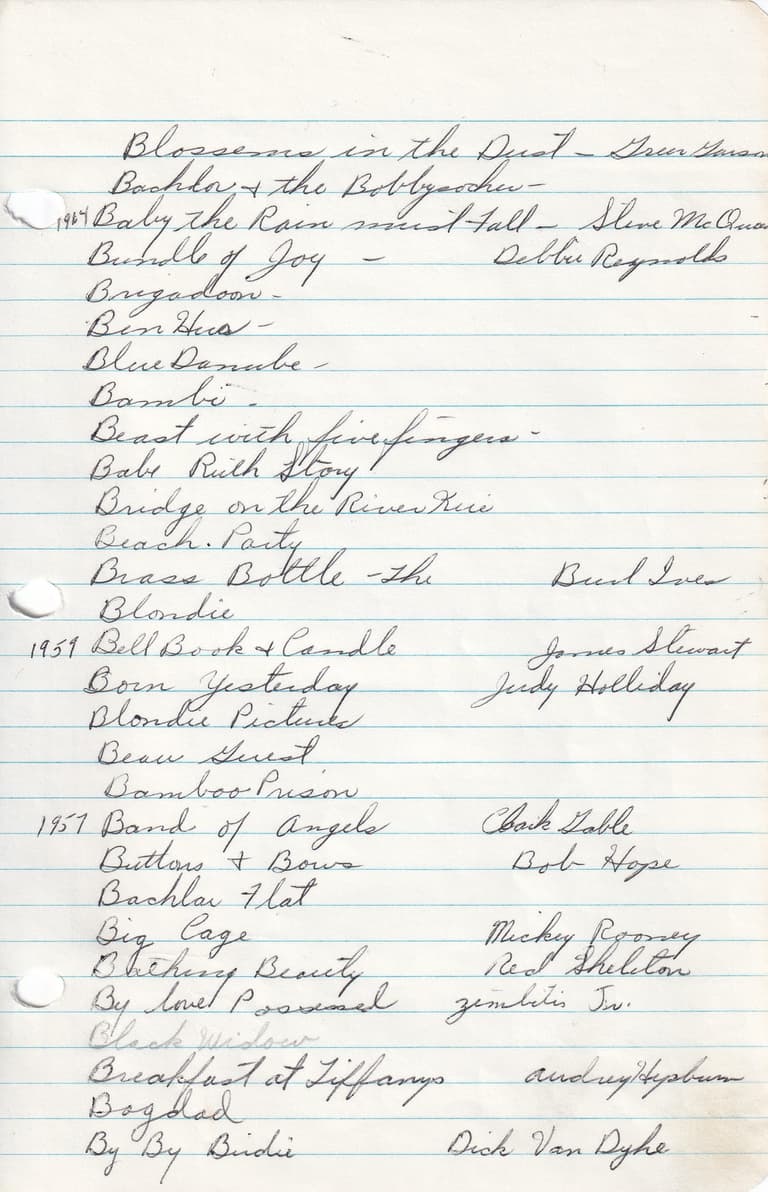 Blossems in the Dust - Greer Garson
Bachlor & the Bobbysocher -
1964 Baby the Rain must Fall - Steve McQuee
Bundle of Joy - Debbie Reynolds
Brigadoon -
Ben Hur -
Blue Danube -
Bambi -
Beast with five fingers -
Babe Ruth Story
Bridge on the River Kui
Beach. Party
Brass Bottle - The Burl Ives
Blondie
1959 Bell Book & Candle James Stewart
Born Yesterday Judy Holliday
Blondie Pictures
Beau Guest
Bamboo Prison
1957 Band of Angels Clark Gable
Buttons & Bows Bob Hope
Bachlar Flat
Big Cage Mickey Rooney
Bathing Beauty Red Skelton
By love Possessed Jr.
Black Widow
Breakfast at Tiffanys Audrey Hepburn
Bagdad
By By Birdie Dick Van Dyke